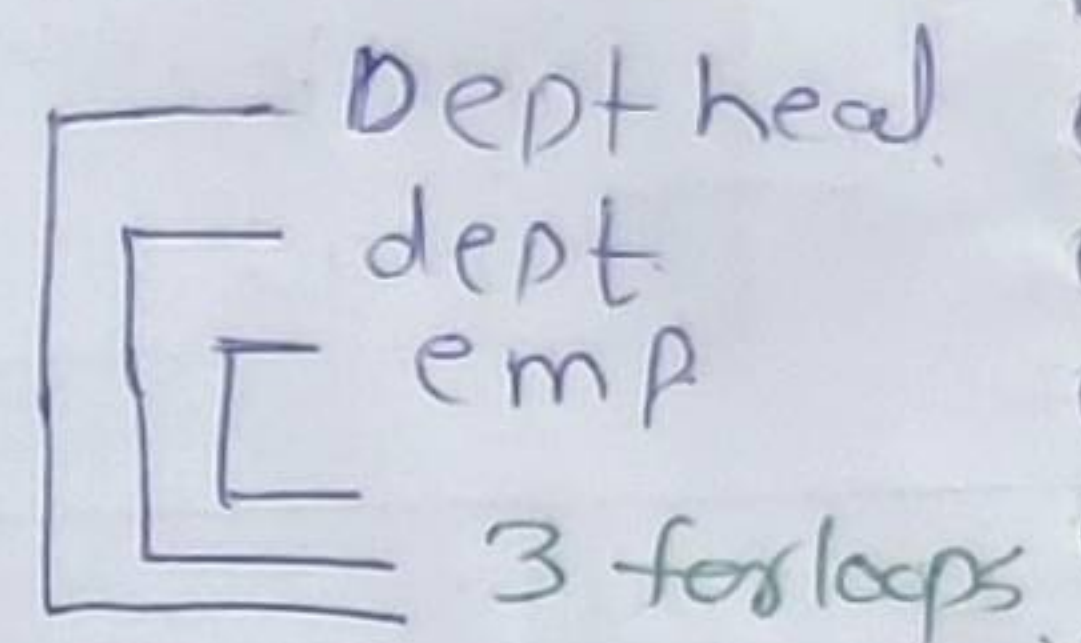 Dept head
dept
emp
3 for loops